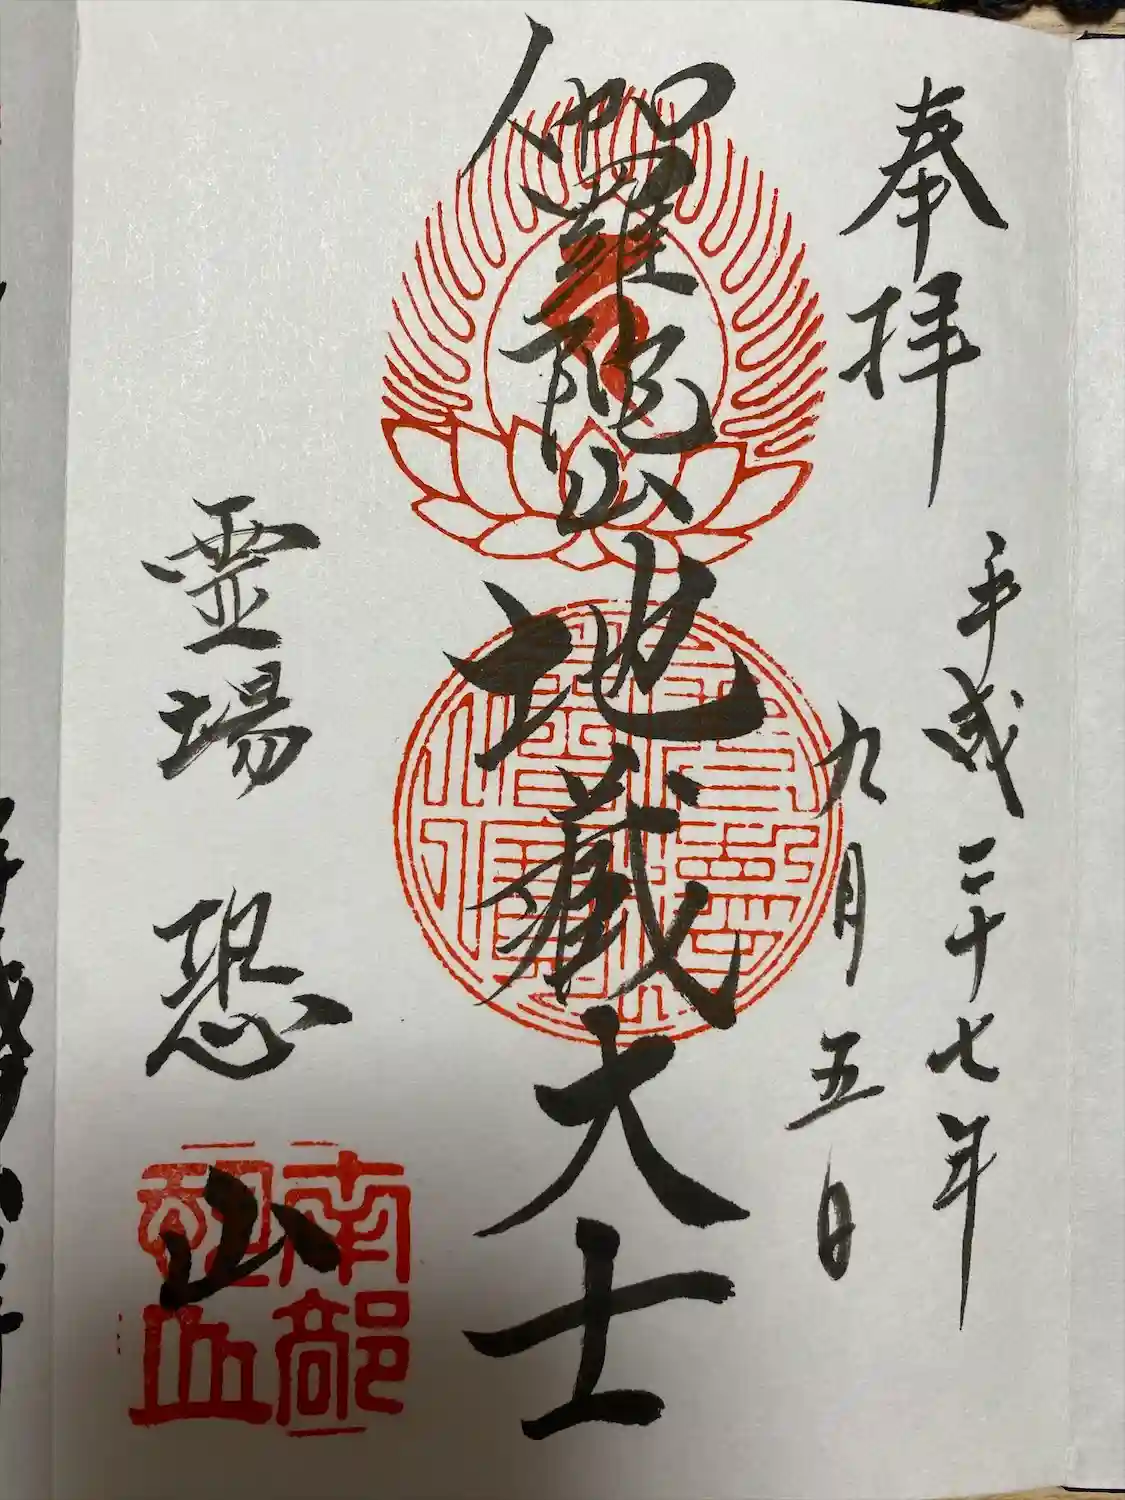 奉拝
平成二十七年
九月五日
伽羅陀山地蔵大士
霊場 恐山
南部